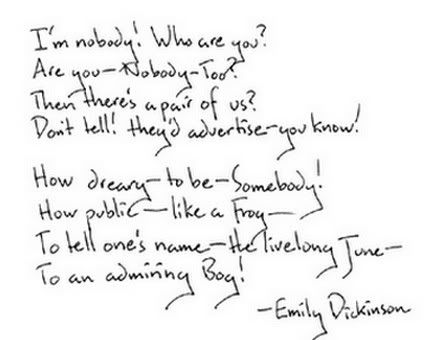 I'm nobody! Who are you?
Are you—Nobody—Too?
Then there's a pair of us?
Don't tell! they'd advertise—you know!
How dreary—to be—Somebody!
How public—like a Frog—
To tell one's name—the livelong June—
To an admiring Bog!
—Emily Dickinson